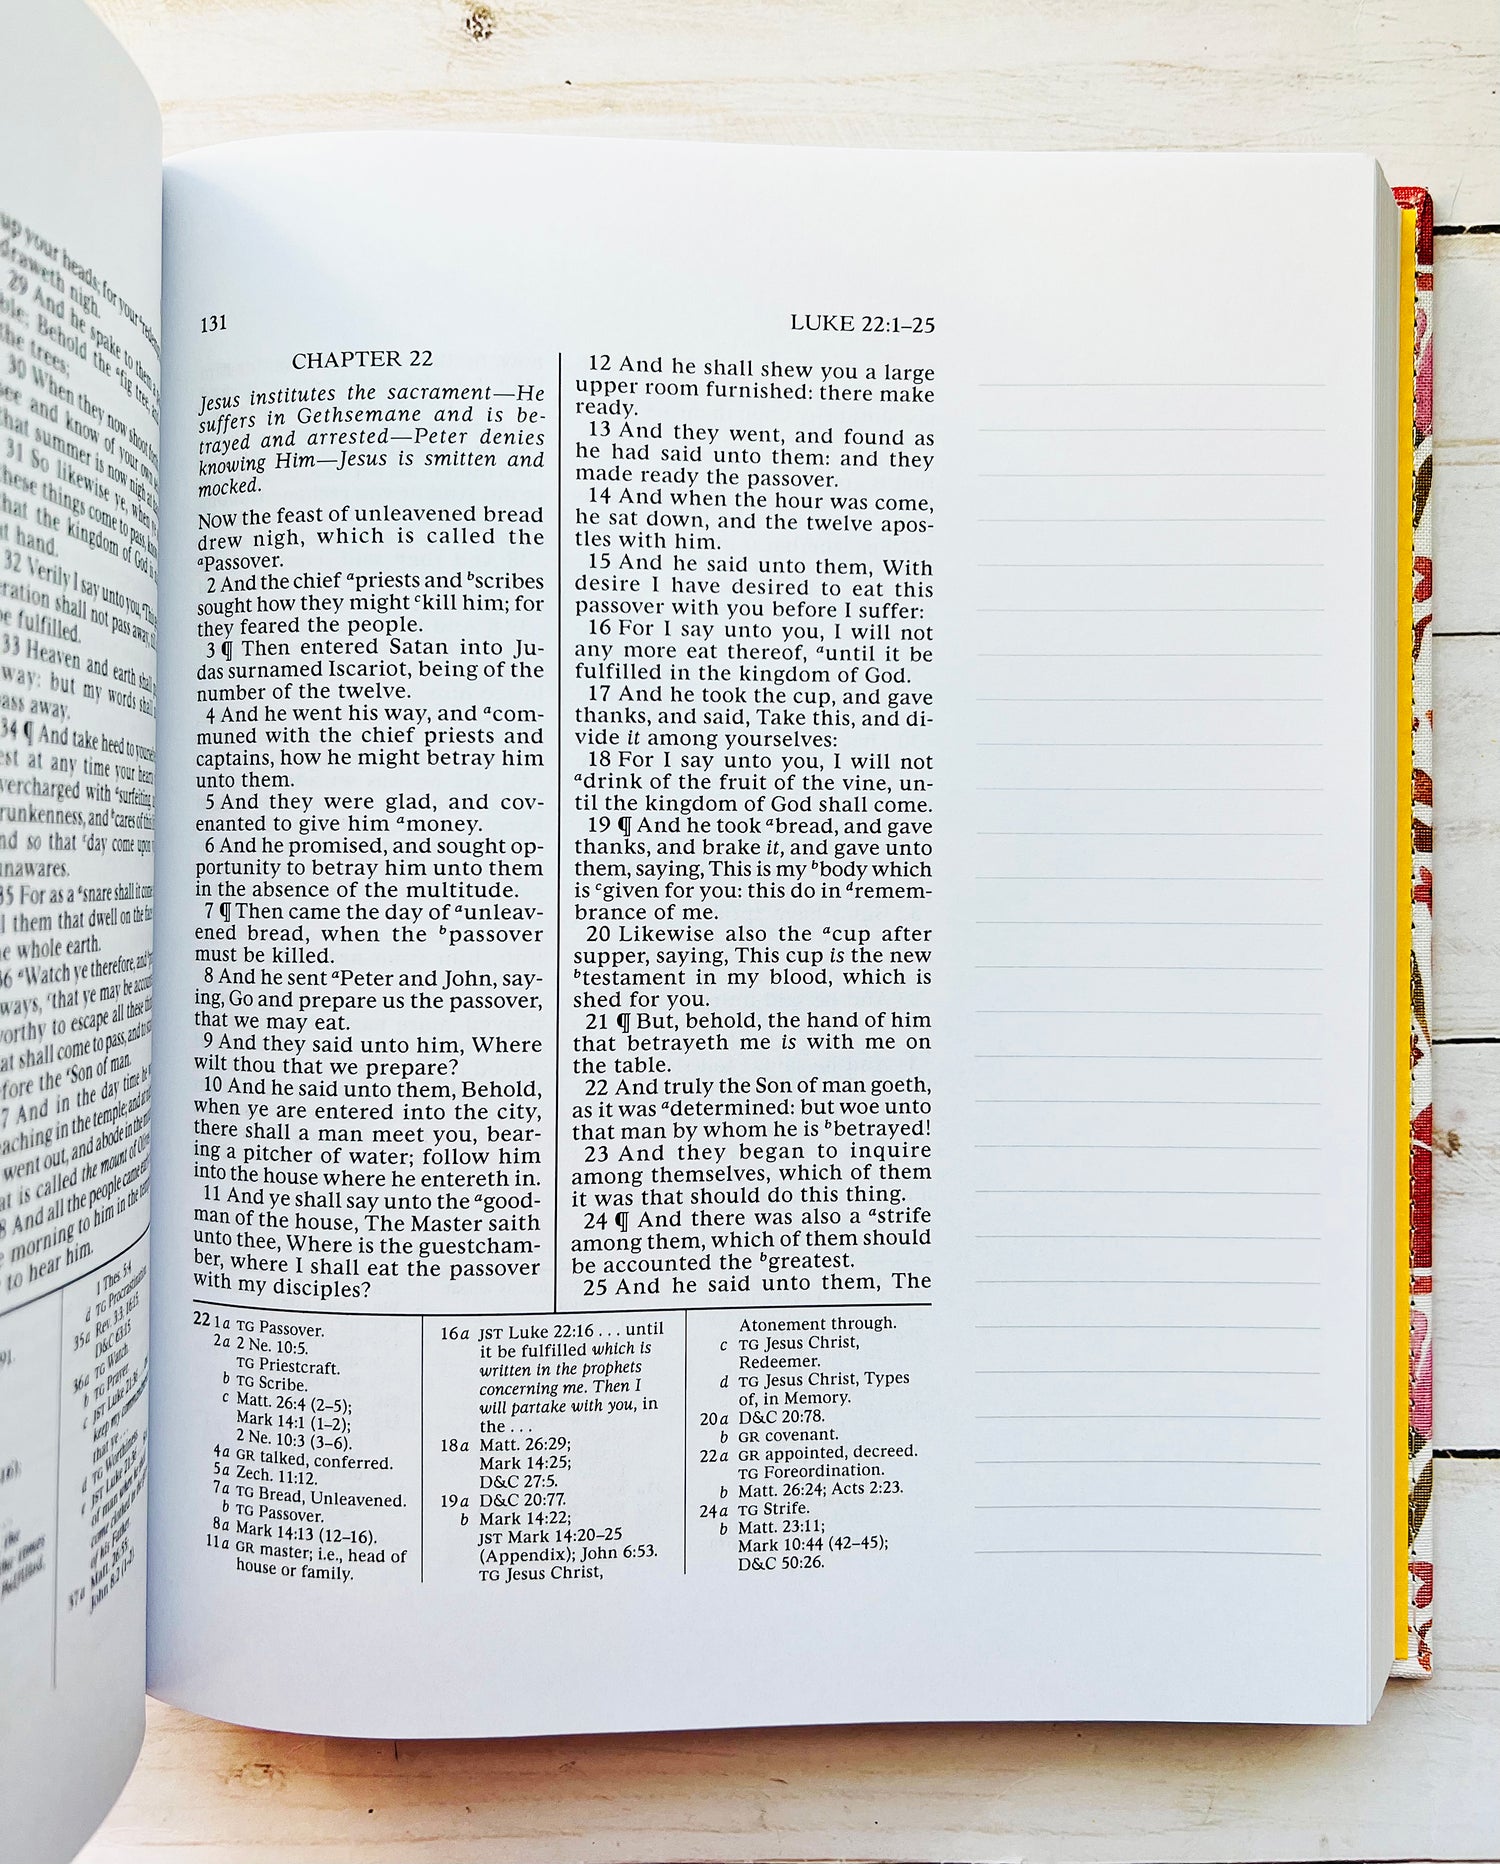 up your heads; for your
draweth nigh.
29 And he spake to them a
ble; Behold the ᵃfig tree, and
the trees;
30 When they now shoot
see and know of your own
that summer is now nigh at
31 So likewise ye, when ye
these things come to pass,
that the kingdom of God is
at hand.
32 Verily I say unto you,
eration shall not pass away,
be fulfilled.
33 Heaven and earth shall
way: but my words shall
ass away.
34 ¶ And take heed to
est at any time your
vercharged with ᵃsurfeiting
runkenness, and ᵇcares of
nd so that ᶜday come upon
nawares.
35 For as a ᵃsnare shall it come
l them that dwell on the face
e whole earth.
36 ᵃWatch ye therefore, and
ways, ᶜthat ye may be
orthy to escape all these
at shall come to pass, and to
fore the ᵉSon of man.
7 And in the day time he
eaching in the temple; and at
went out, and abode in the
at is called the mount of
8 And all the people came early
e morning to him in the
to hear him.
1 Thes. 5:4
d TG Procrastination
35a Rev. 3:3; 16:15
D&C 63:15
36a TG Watch.
b TG Prayer.
131
LUKE 22:1–25
CHAPTER 22
Jesus institutes the sacrament—He
suffers in Gethsemane and is be-
trayed and arrested—Peter denies
knowing Him—Jesus is smitten and
mocked.
Now the feast of unleavened bread
drew nigh, which is called the
ᵃPassover.
2 And the chief ᵃpriests and ᵇscribes
sought how they might ᶜkill him; for
they feared the people.
3 ¶ Then entered Satan into Ju-
das surnamed Iscariot, being of the
number of the twelve.
4 And he went his way, and ᵃcom-
muned with the chief priests and
captains, how he might betray him
unto them.
5 And they were glad, and cov-
enanted to give him ᵃmoney.
6 And he promised, and sought op-
portunity to betray him unto them
in the absence of the multitude.
7 ¶ Then came the day of ᵃunleav-
ened bread, when the ᵇpassover
must be killed.
8 And he sent ᵃPeter and John, say-
ing, Go and prepare us the passover,
that we may eat.
9 And they said unto him, Where
wilt thou that we prepare?
10 And he said unto them, Behold,
when ye are entered into the city,
there shall a man meet you, bear-
ing a pitcher of water; follow him
into the house where he entereth in.
11 And ye shall say unto the ᵃgood-
man of the house, The Master saith
unto thee, Where is the guestcham-
ber, where I shall eat the passover
with my disciples?
12 And he shall shew you a large
upper room furnished: there make
ready.
13 And they went, and found as
he had said unto them: and they
made ready the passover.
14 And when the hour was come,
he sat down, and the twelve apos-
tles with him.
15 And he said unto them, With
desire I have desired to eat this
passover with you before I suffer:
16 For I say unto you, I will not
any more eat thereof, ᵃuntil it be
fulfilled in the kingdom of God.
17 And he took the cup, and gave
thanks, and said, Take this, and di-
vide it among yourselves:
18 For I say unto you, I will not
ᵃdrink of the fruit of the vine, un-
til the kingdom of God shall come.
19 ¶ And he took ᵃbread, and gave
thanks, and brake it, and gave unto
them, saying, This is my ᵇbody which
is ᶜgiven for you: this do in ᵈremem-
brance of me.
20 Likewise also the ᵃcup after
supper, saying, This cup is the new
ᵇtestament in my blood, which is
shed for you.
21 ¶ But, behold, the hand of him
that betrayeth me is with me on
the table.
22 And truly the Son of man goeth,
as it was ᵃdetermined: but woe unto
that man by whom he is ᵇbetrayed!
23 And they began to inquire
among themselves, which of them
it was that should do this thing.
24 ¶ And there was also a ᵃstrife
among them, which of them should
be accounted the ᵇgreatest.
25 And he said unto them, The
22 1a TG Passover.
2a 2 Ne. 10:5.
TG Priestcraft.
b TG Scribe.
c Matt. 26:4 (2–5);
Mark 14:1 (1–2);
2 Ne. 10:3 (3–6).
4a GR talked, conferred.
5a Zech. 11:12.
7a TG Bread, Unleavened.
b TG Passover.
8a Mark 14:13 (12–16).
11a GR master; i.e., head of
house or family.
16a JST Luke 22:16 . . . until
it be fulfilled which is
written in the prophets
concerning me. Then I
will partake with you, in
the . . .
18a Matt. 26:29;
Mark 14:25;
D&C 27:5.
19a D&C 20:77.
b Mark 14:22;
JST Mark 14:20–25
(Appendix); John 6:53.
TG Jesus Christ,
Atonement through.
c TG Jesus Christ,
Redeemer.
d TG Jesus Christ, Types
of, in Memory.
20a D&C 20:78.
b GR covenant.
22a GR appointed, decreed.
TG Foreordination.
b Matt. 26:24; Acts 2:23.
24a TG Strife.
b Matt. 23:11;
Mark 10:44 (42–45);
D&C 50:26.